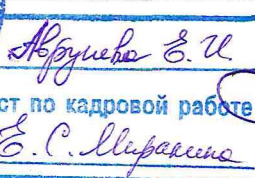 Аврунева Е. И.
ст по кадровой работе
Е. С. Миранина